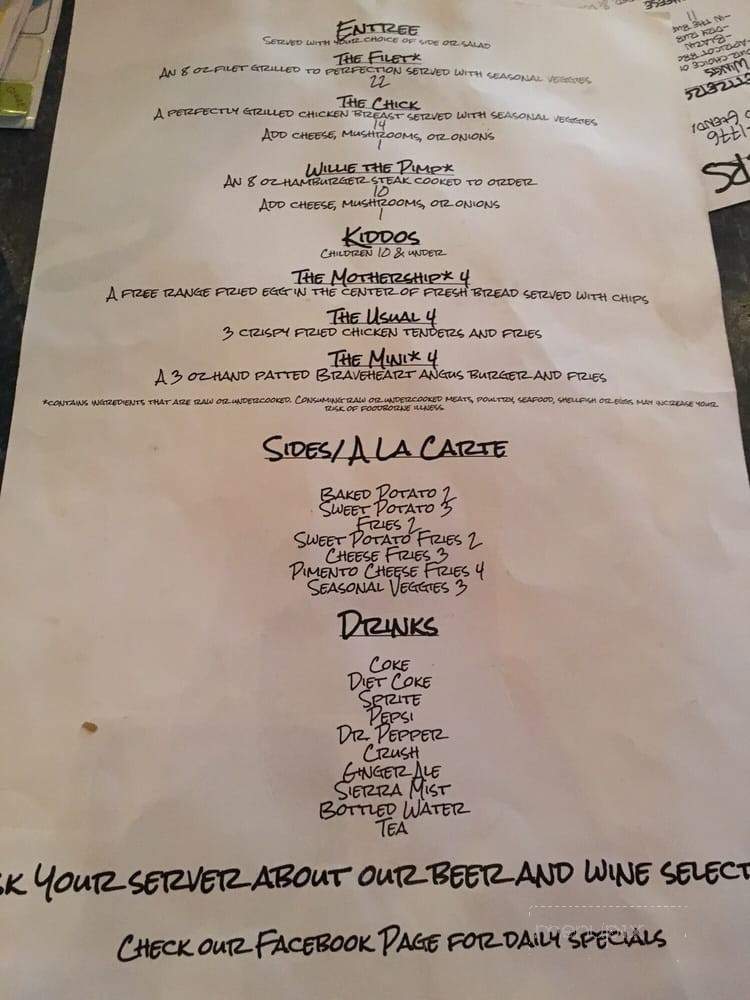 Entree
Served with your choice of side or salad
The Filet*
An 8 oz filet grilled to perfection served with seasonal veggies
22
The Chick
A perfectly grilled chicken breast served with seasonal veggies
14
Add cheese, mushrooms, or onions
1
Willie the Pimp*
An 8 oz hamburger steak cooked to order
10
Add cheese, mushrooms, or onions
1
Kiddos
Children 10 & under
The Mothership* 4
A free range fried egg in the center of fresh bread served with chips
The Usual 4
3 crispy fried chicken tenders and fries
The Mini* 4
A 3 oz hand patted Braveheart Angus burger and fries
*contains ingredients that are raw or undercooked. Consuming raw or undercooked meats, poultry, seafood, shellfish or eggs may increase your
risk of foodborne illness
Sides/A La Carte
Baked Potato 2
Sweet Potato 3
Fries 2
Sweet Potato Fries 2
Cheese Fries 3
Pimento Cheese Fries 4
Seasonal Veggies 3
Drinks
Coke
Diet Coke
Sprite
Pepsi
Dr. Pepper
Crush
Ginger Ale
Sierra Mist
Bottled Water
Tea
sk your server about our beer and wine select
Check our Facebook Page for daily specials
menupix